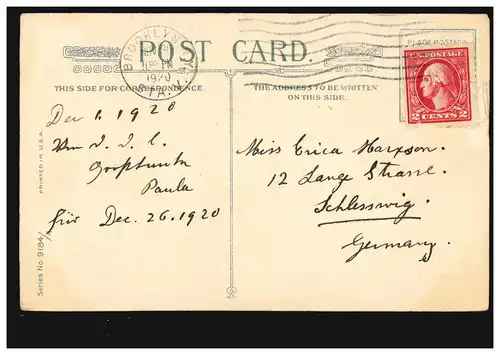 POST CARD.
THIS SIDE FOR CORRESPONDENCE.
THE ADDRESS TO BE WRITTEN
ON THIS SIDE.
BROOKLYN
PM
1920
STA.
PLACE POSTAGE
U.S. POSTAGE
2 CENTS 2
Dec 1. 1920
Von
Großtante
Paula
für Dec. 26. 1920
Miss Erica Harxsen.
12 Lange Strasse.
Schlesswig.
Germany.
PRINTED IN U.S.A.
Series No. 9184